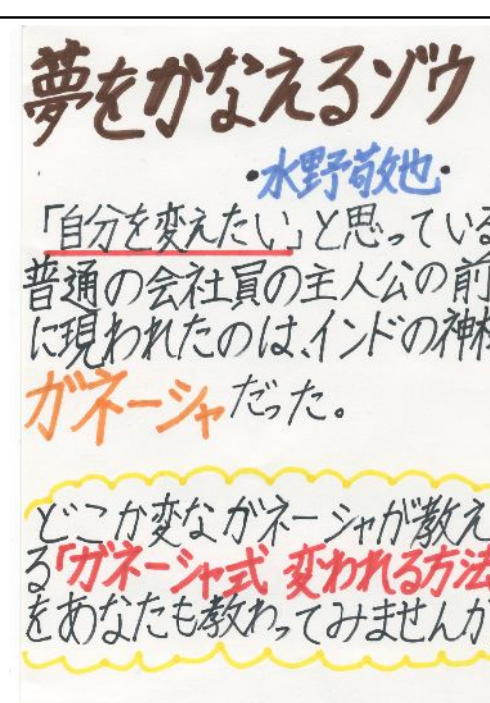 夢をかなえるゾウ
・水野敬也・
「自分を変えたい」と思っている
普通の会社員の主人公の前
に現われたのは、インドの神様
ガネーシャだった。
どこか変なガネーシャが教え
る「ガネーシャ式 変われる方法
をあなたも教わってみませんか